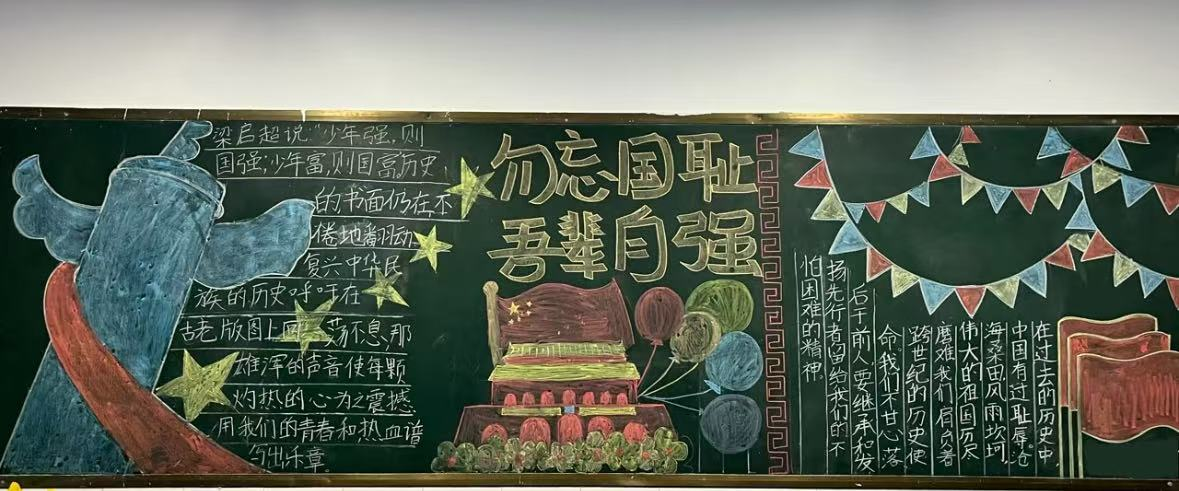 梁启超说:"少年强,则
国强,少年富,则国富,历史
的书面仍在不
倦地翻动
复兴中华民
族的历史呼吁在
古老版图上回荡不息,那
雄浑的声音使每颗
灼热的心为之震撼
用我们的青春和热血谱
写出乐章。
勿忘国耻
吾辈自强
在过去的历史中,
中国有过耻辱。沧
海桑田,风雨坎坷,
伟大的祖国历尽
磨难,我们肩负着
跨世纪的历史使
命,我们不甘心落
后于前人,要继承和发
扬先行者留给我们的不
怕困难的精神。